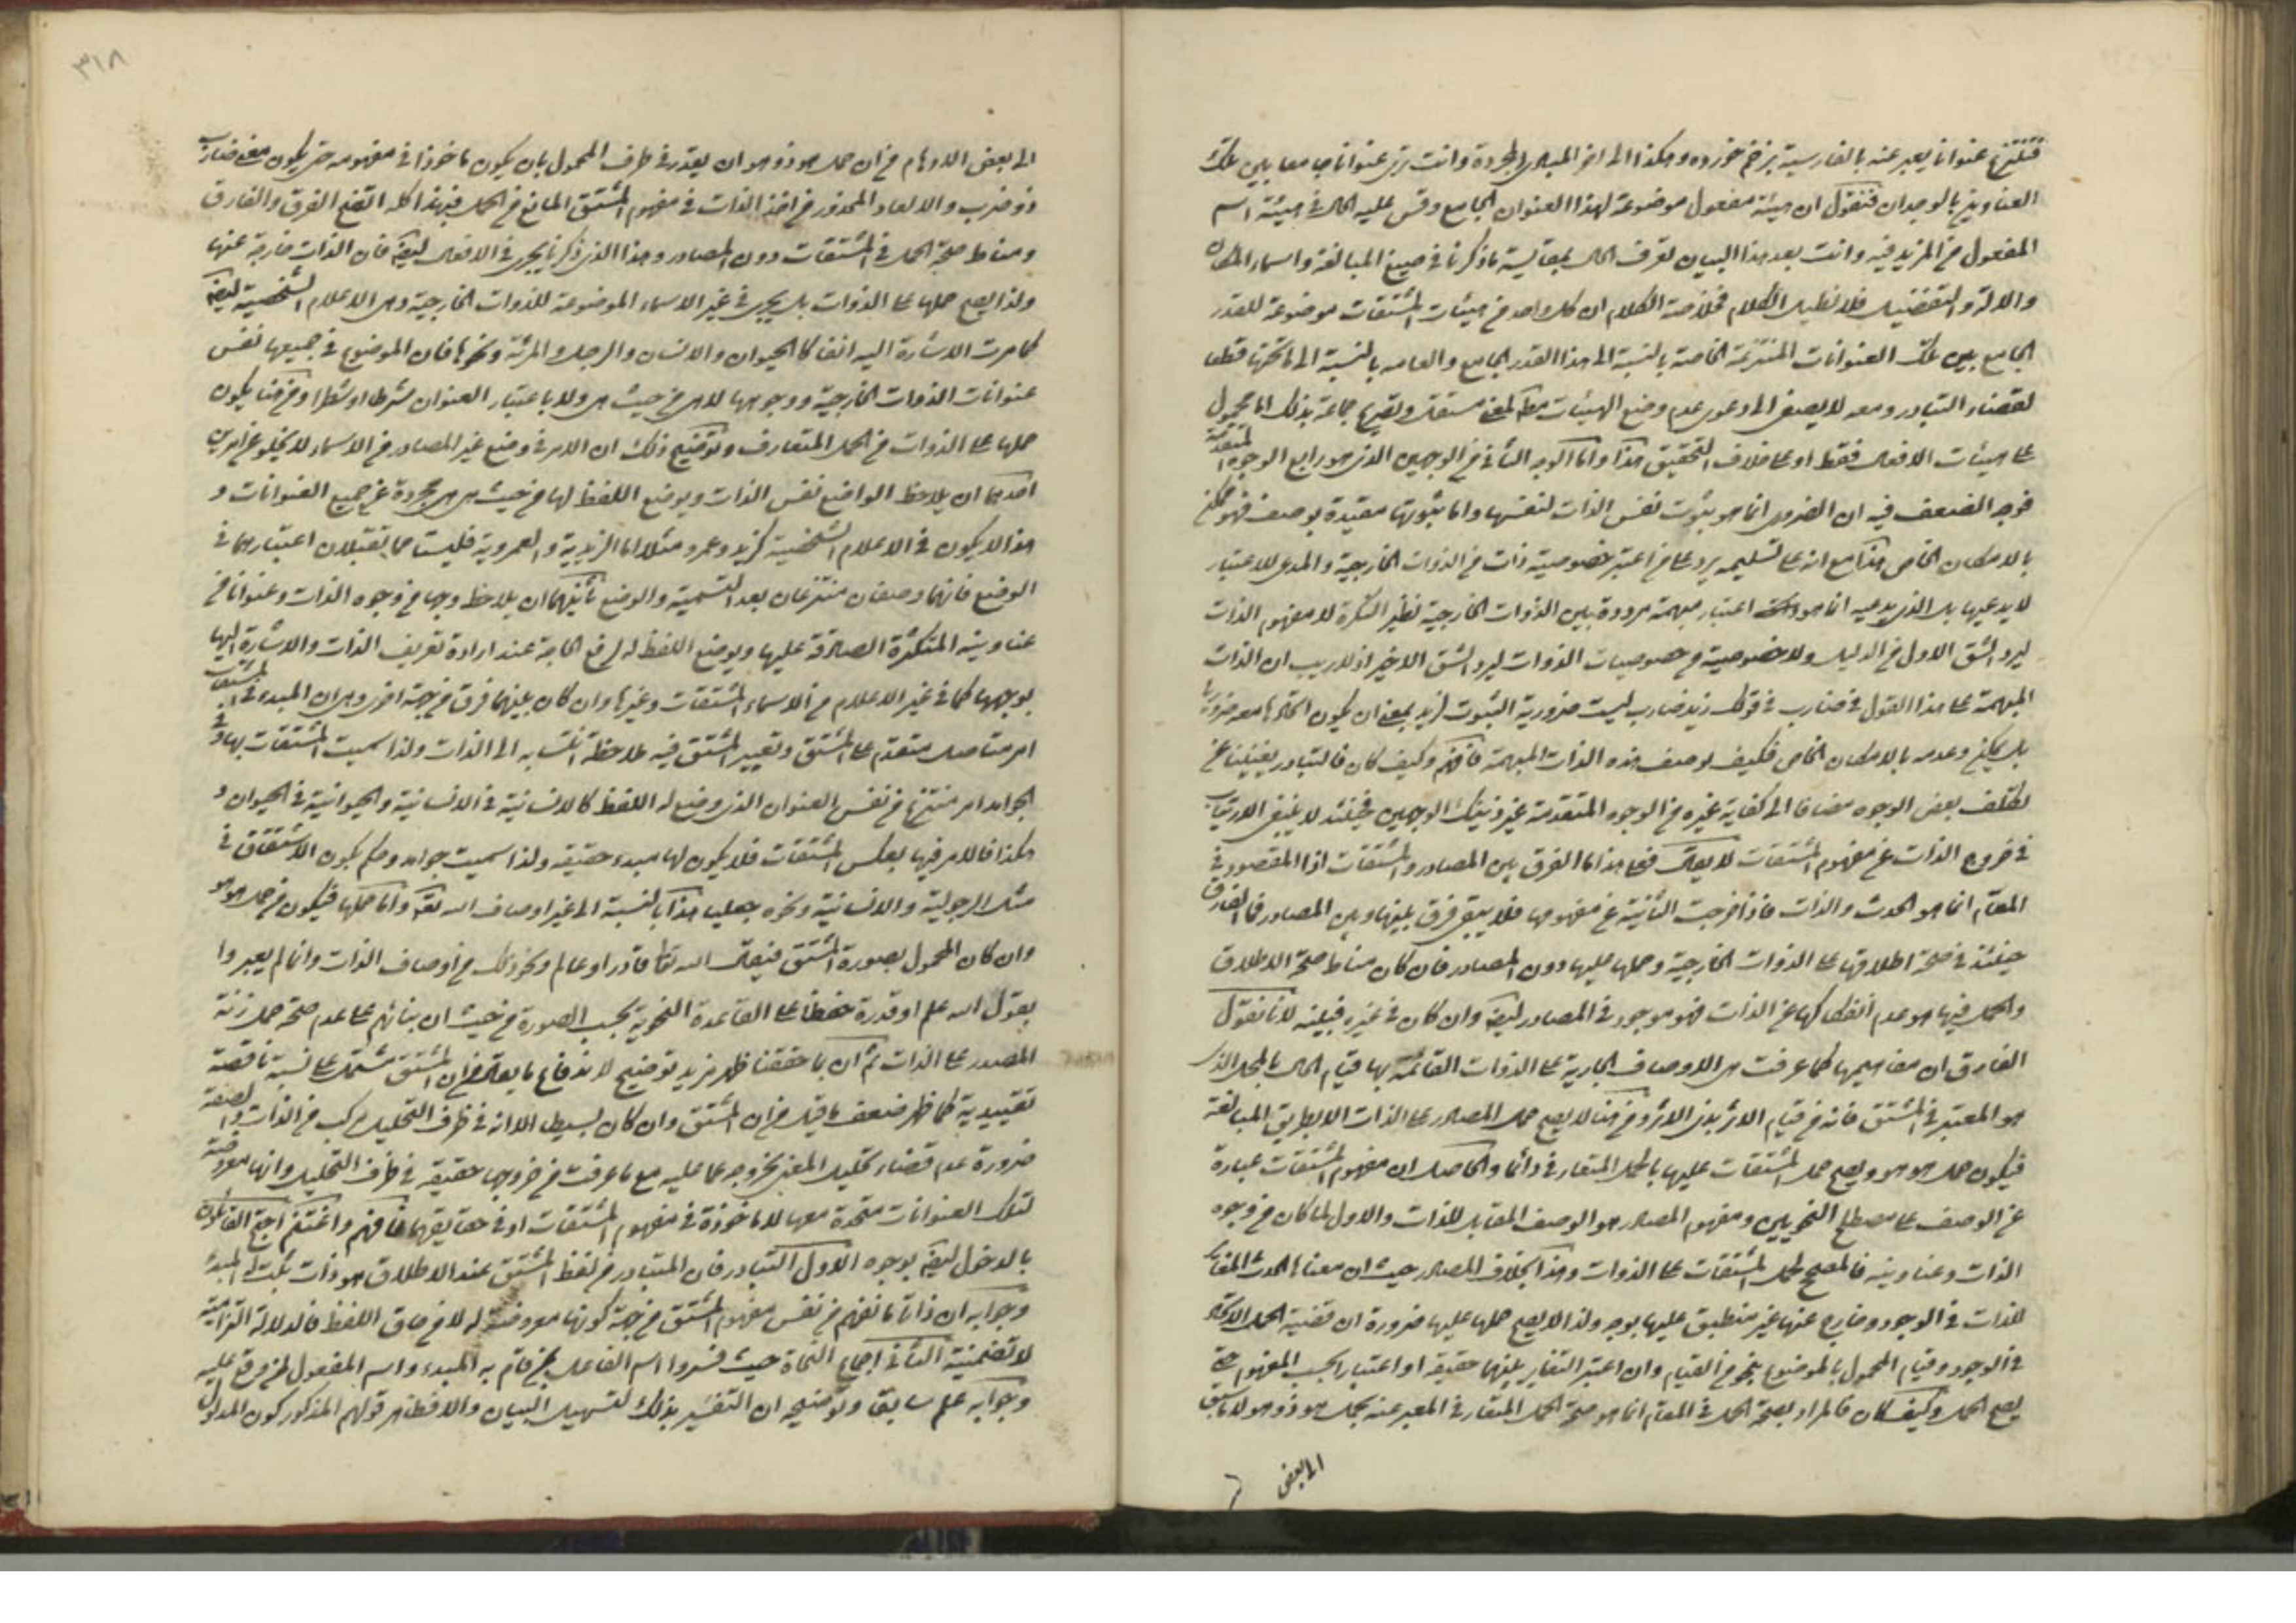 فتنتزع عنوانا يعبر عنه بالفارسية بزخم خورده وهكذا الى اخر المبادى المجردة وانت ترى عنوانا جامعا بين تلك
العناوين بالوجدان فنقول ان هيئة مفعول موضوعة لهذا العنوان الجامع وقس عليه الحال فى هيئة اسم
المفعول من المزيد فيه وانت بعد هذا البيان تعرف الحال بمقايسة ما ذكرنا فى صيغ المبالغة واسماء المكان
والالة والتفضيل فلا نطيل الكلام فخلاصة الكلام ان كل واحد من هيئات المشتقات موضوعة للقدر
الجامع بين تلك العنوانات المنتزعة الخاصة بالنسبة الى هذا القدر الجامع والعامه بالنسبة الى ما تحتها قطعا
لقضاء التبادر ومعه لا يصغى الى دعوى عدم وضع الهيئات لمعنى مستقل وتصريح جماعة بذلك اما محمول
على هيئات الافعال فقط او على خلاف التحقيق هذا واما الوجه الثانى من الوجهين الذى هو رابع الوجوه المتقدمة
فوجه الضعف فيه ان الضرورى انما هو ثبوت نفس الذات لنفسها واما ثبوتها مقيدة بوصف فهو ممكن
بالامكان الخاص هذا مع انه على تسليمه يرد على من اعتبر خصوصية ذات من الذوات الخارجية والمدعى للاعتبار
لا يدعيها بل الذى يدعيه انما هو اعتبار مبهمة مرددة بين الذوات الخارجية نظير النكرة لا مفهوم الذات
ليرد الشق الاول من الدليل ولا خصوصية من خصوصيات الذوات ليرد الشق الاخير اذ لا ريب ان الذات
المبهمة على هذا القول فى ضارب فى قولك زيد ضارب ليست ضرورية الثبوت لزيد بمعنى ان يكون اتحادها معه ضروريا
بل يمكن وعدمه بالامكان الخاص فكيف بوصف هذه الذات المبهمة فافهم وكيف كان فالتبادر يغنينا عن
تكلف بعض الوجوه مضافا الى كفاية غيره من الوجوه المتقدمة غير ذينك الوجهين فحينئذ لا ينبغى الارتياب
فى خروج الذات عن مفهوم المشتقات لا يقال فعلى هذا ما الفرق بين المصادر والمشتقات اذ المقصود فى
المقام انما هو الحدث والذات فاذا خرجت الثانية عن مفهومها فلا يبقى فرق بينها وبين المصادر فما الفارق
حينئذ فى صحة اطلاقها على الذوات الخارجية وحملها عليها دون المصادر فان كان مناط صحة الاطلاق
والحمل فيها هو عدم انفكاكها عن الذات فهو موجود فى المصادر ايضا وان كان فى غيره فبينه لانا نقول
الفارق ان مفاهيمها كما عرفت هى الاوصاف الجارية على الذوات القائمة بها قيام الحال بالمحل الذى
هو المعتبر فى المشتق فانه من قيام الاثر بذى الاثر ومن هنا لا يصح حمل المصادر على الذات الا بطريق المبالغة
فيكون حمل هو هو ويصح حمل المشتقات عليها بالحمل المتعارف دائما والحاصل ان مفهوم المشتقات عبارة
عن الوصف على مصطلح النحويين ومفهوم المصادر هو الوصف المقابل للذات والاول لما كان من وجوه
الذات وعناوينه فالمصحح لحمل المشتقات على الذوات وهذا بخلاف المصادر حيث ان معناها الحدث المغاير
للذات فى الوجود وخارج عنها غير منطبق عليها بوجه ولذا لا يصح حملها عليها ضرورة ان قضية الحمل الاتحاد
فى الوجود وقيام المحمول بالموضوع بنحو من القيام وان اعتبر التغاير بينهما حقيقة او اعتبارا بحسب المفهوم حتى
يصح الحمل وكيف كان فالمراد بصحة الحمل فى المقام انما هو صحة الحمل المتعارف المعبر عنه بحمل هو ذو هو لا ما سبق
الى بعض
٣١٨
الى بعض الاوهام من ان حمل هو ذو هو ان يقدر فى طرف المحمول بان يكون ماخوذا فى مفهومه حتى يكون معنى ضارب
ذو ضرب والا لعاد المحذور من اخذ الذات فى مفهوم المشتق المانع من الحمل فبهذا كله اتضح الفرق والفارق
ومناط صحة الحمل فى المشتقات دون المصادر وهذا الذى ذكرنا يجرى فى الافعال ايضا فان الذات خارجة عنها
ولذا يصح حملها على الذوات بل يجرى فى غير الاسماء الموضوعة للذوات الخارجية وهى الاعلام الشخصية ايضا
كما مرت الاشارة اليه انفا كالحيوان والانسان والرجل والمرئة ونحوها فان الموضوع فى جميعها نفس
عنوانات الذوات الخارجية ووجوهها لا هى من حيث هى ولا باعتبار العنوان شرطا او شطرا ومن هنا يكون
حملها على الذوات من الحمل المتعارف وتوضيح ذلك ان الامر فى وضع غير المصادر من الاسماء لا يخلو عن امرين
احدهما ان يلاحظ الواضع نفس الذات ويوضع اللفظ لها من حيث هى هى مجردة عن جميع العنوانات و
هذا لا يكون فى الاعلام الشخصية كزيد وعمرو مثلا اما الزيدية والعمروية فليستا مما يقبلان اعتبارهما فى
الوضع فانهما وصفان منتزعان بعد التسمية والوضع ثانيهما ان يلاحظ وجها من وجوه الذات وعنوانا من
عناوينه المتكثرة الصادقة عليها ويوضع اللفظ له لرفع الحاجة عند ارادة تعريف الذات والاشارة اليها
بوجهها كما فى غير الاعلام من الاسماء المشتقات وغيرها وان كان بينهما فرق من جهة اخرى وهى ان المبدء فى المشتقات
امر متاصل متقدم على المشتق وتعبير المشتق فيه ملاحظة انتسابه الى الذات ولذا سميت المشتقات بها وفى
الجوامد امر منتزع من نفس العنوان الذى وضع له اللفظ كالانسانية فى الانسان والحيوانية فى الحيوان و
هكذا فالامر فيها بعكس المشتقات فلا يكون لها مبدء حقيقة ولذا سميت جوامد وحكم بكون الاشتقاق فى
مثل الرجولية والانسانية ونحوه جعليا هذا بالنسبة الى غير اوصاف الله تعالى واما حملها فيكون من حمل هو هو
وان كان المحمول بصورة المشتق فيقال الله تعالى قادر او عالم ونحو ذلك من اوصاف الذات وانما لم يعبروا
بقول الله علم او قدرة حفظا على القاعدة النحوية بحسب الصورة من حيث ان بنائهم على عدم صحة حمل زنة
المصدر على الذات ثم ان بما حققنا ظهر مزيد توضيح لاندفاع ما يقال من ان المشتق مشتمل على نسبة ناقصة
تقييدية كما ظهر ضعف ما قيل من ان المشتق وان كان بسيطا الا انه فى ظرف التحليل مركب من الذات والصفة
ضرورة عدم قضاء تحليل المعنى بخروجه عما عليه مع ما عرفت من خروجها حقيقة فى ظرف التحليل وانها معروضة
لتلك العنوانات متحدة معها لا ماخوذة فى مفهوم المشتقات او فى حقايقها فافهم واغتنم احتج القائلون
بالدخول ايضا بوجوه الاول التبادر فان المتبادر من لفظ المشتق عند الاطلاق هو ذات ثبت له المبدء
وجوابه ان ذاتا ما تفهم من نفس مفهوم المشتق من جهة كونها معروضة له لا من حاق اللفظ فالدلالة التزامية
لا تضمنية الثانى اجماع النحاة حيث فسروا اسم الفاعل بمن قام به المبدء واسم المفعول بمن وقع عليه
وجوابه علم سابقا وتوضيحه ان التفسير بذلك لتسهيل البيان والا فظاهر قولهم المذكور كون المدلول